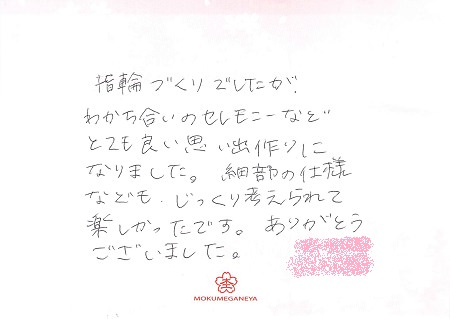 指輪づくりでしたが、
わかち合いのセレモニーなど
とても良い思い出作りに
なりました。細部の仕様
なども、じっくり考えられて
楽しかったです。ありがとう
ございました。
MOKUMEGANEYA